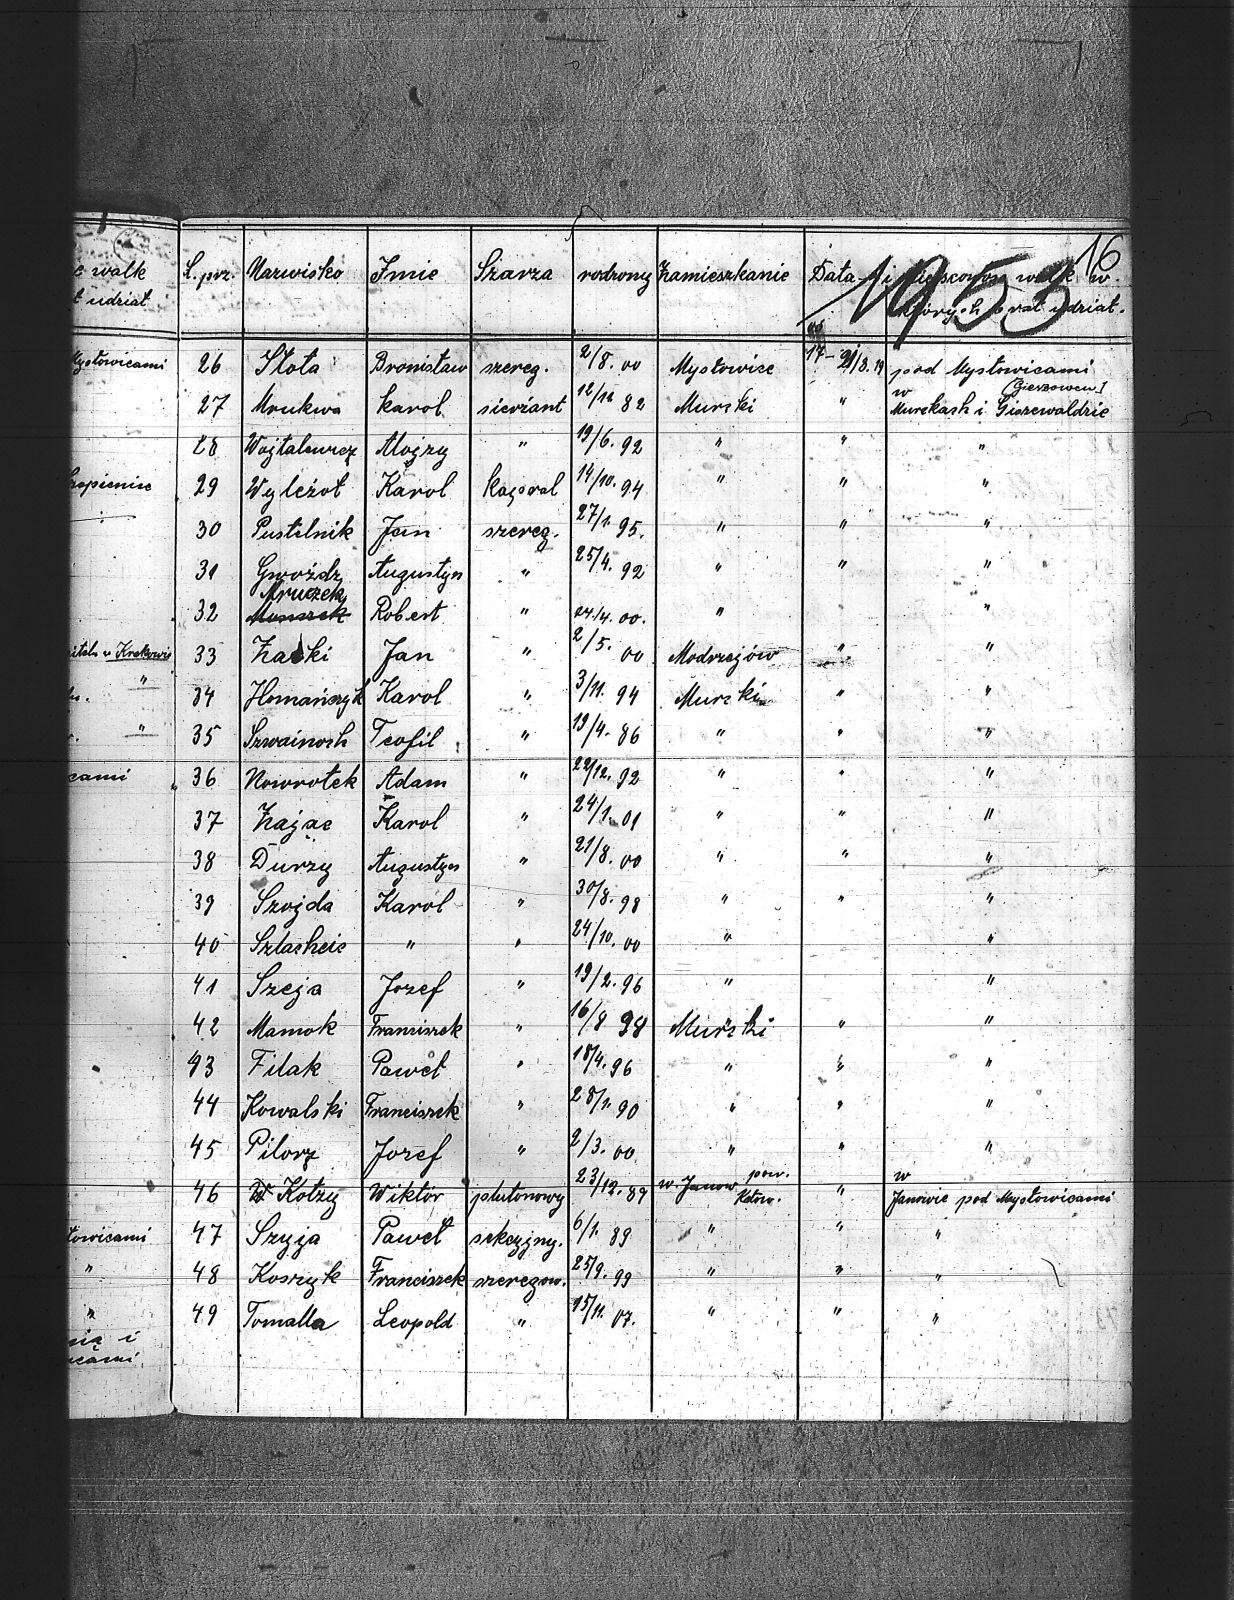 16
1953
e walk
t udział
L. prz. Nazwisko Imie Szarża rodzony Zamieszkanie Data i miejscowość walk w
których brał udział.
Mysłowicami 26 Słota Bronisław szereg. 2/8. 00 Mysłowice 17 - 21/8. 19 pod Mysłowicami
27 Mrukwa Karol sierżant 12/12 82 Murcki " w Murckach i Giszewaldzie (Gieszowem)
28 Wojtalewicz Alojzy " 19/6. 92 " " "
Szopienice 29 Wyleżoł Karol kapral 14/10. 94 " " "
30 Pustelnik Jan szereg. 27/1. 95. " " "
31 Gwoźdz Augustyn " 25/4. 92 " " "
Mruczek
32 Robert " 24/4. 00. " "
w Krakowie 33 Żaski Jan " 2/5. 00 Modrzejów " "
" 34 Homańczyk Karol " 3/11. 94 Murcki " "
" 35 Szwainoch Teofil " 19/4. 86 " " "
cami 36 Nowrotek Adam " 22/12. 92 " " "
37 Zając Karol " 24/1. 01 " " "
38 Durzy Augustyn " 21/8. 00 " " "
39 Szojda Karol " 30/8. 98 " " "
40 Szlacheic " " 24/10. 00 " "
41 Szeja Jozef " 19/2. 96 " "
42 Mamok Franciszek " 16/8 98 Murcki " "
43 Filak Paweł " 18/4. 96 " " "
44 Kowalski Franciszek " 28/1. 90 " " "
45 Pilorz Jozef " 2/3. 00 " " "
46 Kotzy Wiktór plutonowy 23/12. 89 w. Janow pow. Katow. " w Janowie pod Mysłowicami
łowicami 47 Szyja Paweł sekcyjny. 6/1. 89 " " "
" 48 Koszyk Franciszek szeregow. 25/9. 99 " " "
" 49 Tomalla Leopold " 15/11. 07. " " "
nią i
cami